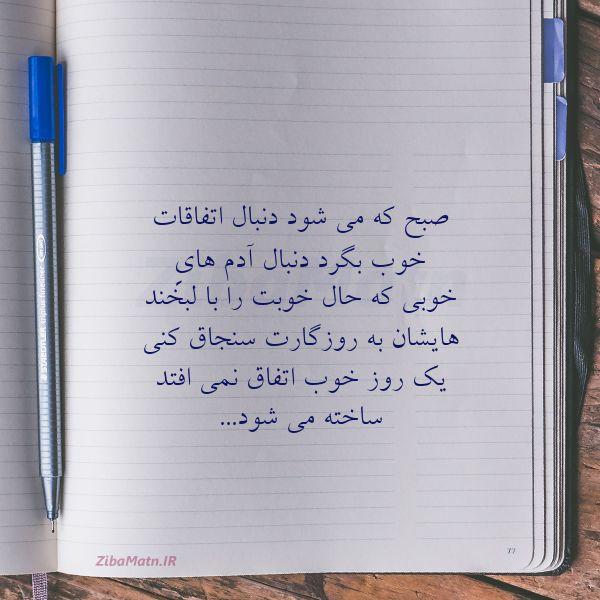 صبح که می شود دنبال اتفاقات
خوب بگرد دنبال آدم های
خوبی که حال خوبت را با لبخند
هایشان به روزگارت سنجاق کنی
یک روز خوب اتفاق نمی افتد
ساخته می شود...
77
ZibaMatn.IR